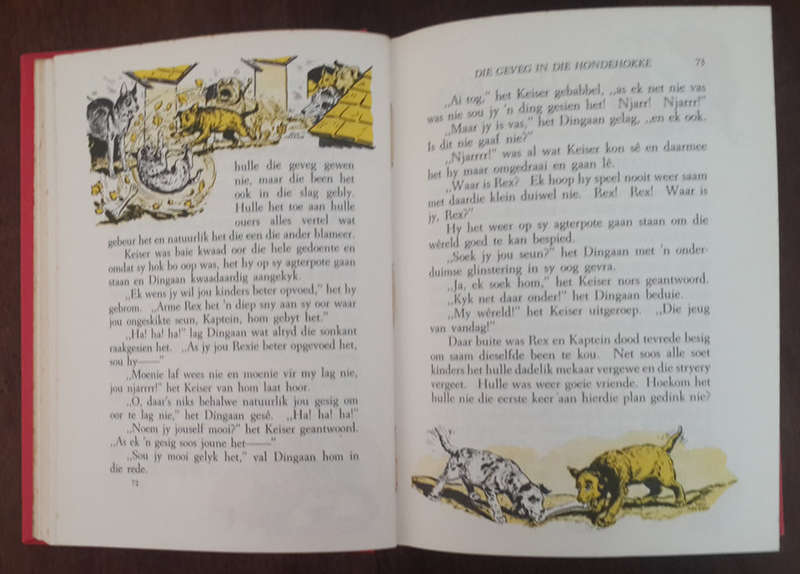 hulle die geveg gewen
nie, maar die been het
ook in die slag gebly.
Hulle het toe aan hulle
ouers alles vertel wat
gebeur het en natuurlik het die een die ander blameer.
Keiser was baie kwaad oor die hele gedoente en
omdat sy hok bo oop was, het hy op sy agterpote gaan
staan en Dingaan kwaadaardig aangekyk.
„Ek wens jy wil jou kinders beter opvoed,” het hy
gebrom. „Arme Rex het 'n diep sny aan sy oor waar
jou ongeskikte seun, Kaptein, hom gebyt het.”
„Ha! ha! ha!” lag Dingaan wat altyd die sonkant
raakgesien het. „As jy jou Rexie beter opgevoed het,
sou hy——”
„Moenie laf wees nie en moenie vir my lag nie,
jou njarrr!” het Keiser van hom laat hoor.
„O, daar's niks behalwe natuurlik jou gesig om
oor te lag nie,” het Dingaan gesê. „Ha! ha! ha!”
„Noem jy jouself mooi?” het Keiser geantwoord.
„As ek 'n gesig soos joune het——”
„Sou jy mooi gelyk het,” val Dingaan hom in
die rede.
72
DIE GEVEG IN DIE HONDEHOKKE 73
„Ai tog,” het Keiser gebabbel, „as ek net nie vas
was nie sou jy 'n ding gesien het! Njarr! Njarrr!”
„Maar jy is vas,” het Dingaan gelag, „en ek ook.
Is dit nie gaaf nie?”
„Njarrrr!” was al wat Keiser kon sê en daarmee
het hy maar omgedraai en gaan lê.
„Waar is Rex? Ek hoop hy speel nooit weer saam
met daardie klein duiwel nie. Rex! Rex! Waar is
jy, Rex?”
Hy het weer op sy agterpote gaan staan om die
wêreld goed te kan bespied.
„Soek jy jou seun?” het Dingaan met 'n onder-
duimse glinstering in sy oog gevra.
„Ja, ek soek hom,” het Keiser nors geantwoord.
„Kyk net daar onder!” het Dingaan beduie.
„My wêreld!” het Keiser uitgeroep. „Die jeug
van vandag!”
Daar buite was Rex en Kaptein dood tevrede besig
om saam dieselfde been te kou. Net soos alle soet
kinders het hulle dadelik mekaar vergewe en die stryery
vergeet. Hulle was weer goeie vriende. Hoekom het
hulle nie die eerste keer aan hierdie plan gedink nie?